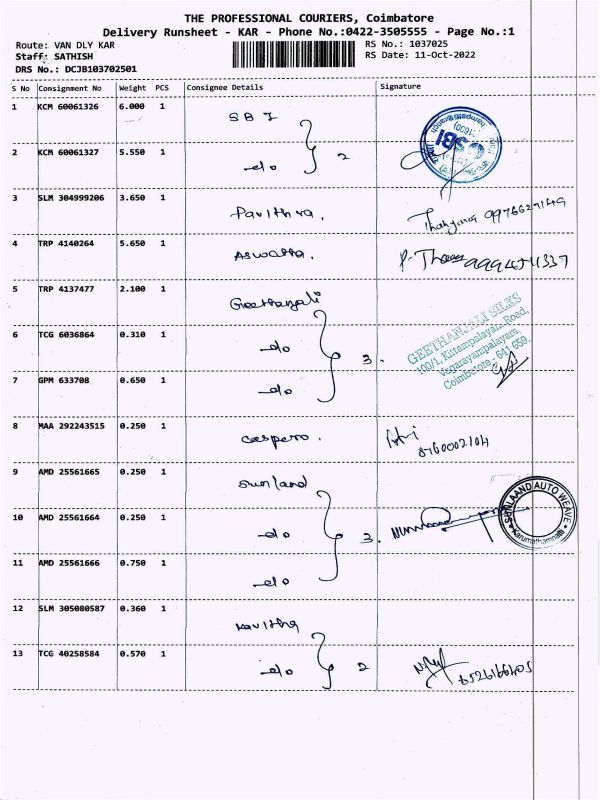 THE PROFESSIONAL COURIERS, Coimbatore
Delivery Runsheet - KAR - Phone No.:0422-3505555 - Page No.:1
Route: VAN DLY KAR
Staff: SATHISH
DRS No.: DCJB103702501
RS No.: 1037025
RS Date: 11-Oct-2022
S No Consignment No Weight PCS Consignee Details Signature
1 KCM 60061326 6.000 1 SBI
2 KCM 60061327 5.550 1 do 2
SBI
3 SLM 304999206 3.650 1 Pavithra.
4 TRP 4140264 5.650 1 Aswatha.
5 TRP 4137477 2.100 1 Geethanjali
6 TCG 6036864 0.310 1 do 3.
7 GPM 633708 0.650 1 do
GEETHANJALI SILKS
100/1, Kittampalayam Road,
Vagarayampalayam,
Coimbatore - 641 659.
8 MAA 292243515 0.250 1 Caspero. 8760002104
9 AMD 25561665 0.250 1 Sunland
10 AMD 25561664 0.250 1 do 3.
SUNLAAND AUTO WEAVE
Karumathampatti
11 AMD 25561666 0.750 1 do
12 SLM 305080587 0.360 1 Kavitha
13 TCG 40258584 0.570 1 do 2